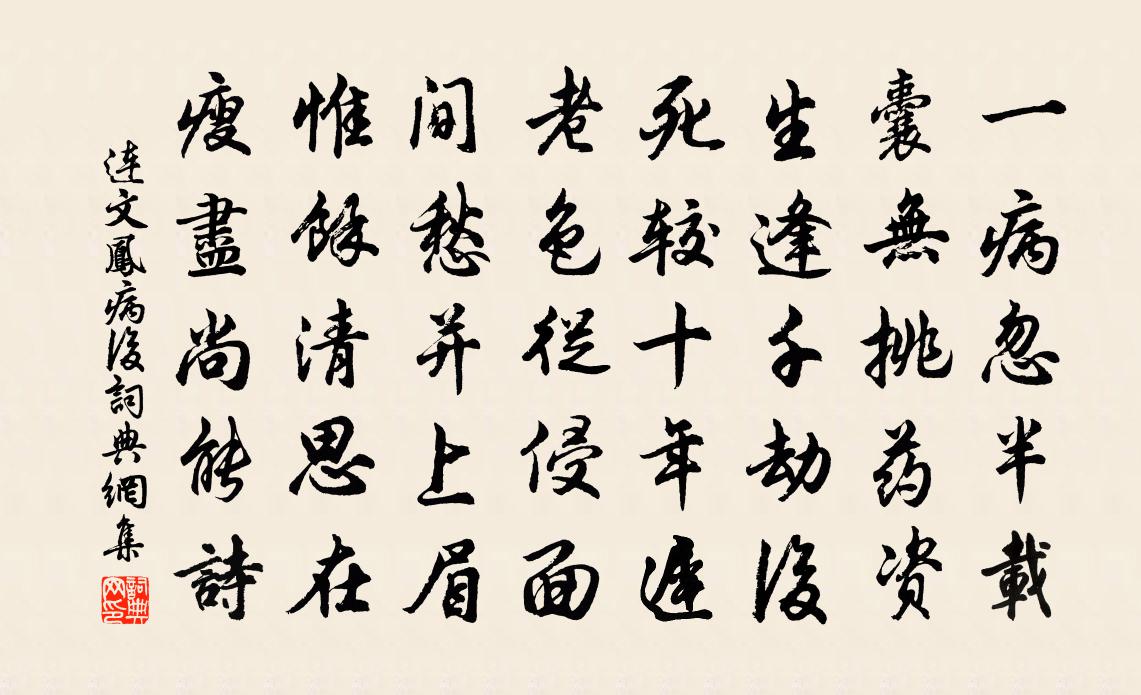 一病忽半載
囊無挑药资
生逢千劫後
死较十年遲
老色從侵面
間愁并上眉
惟餘清思在
瘦盡尚能詩
連文鳳病後詞典網集
詞典